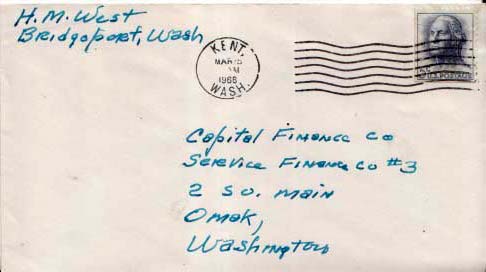 H. M. West
Bridgeport, Wash
KENT,
MAR
1966
WASH.
U.S. POSTAGE
Capital Finance Co
Service Finance Co #3
2 So. Main
Omak,
Washington